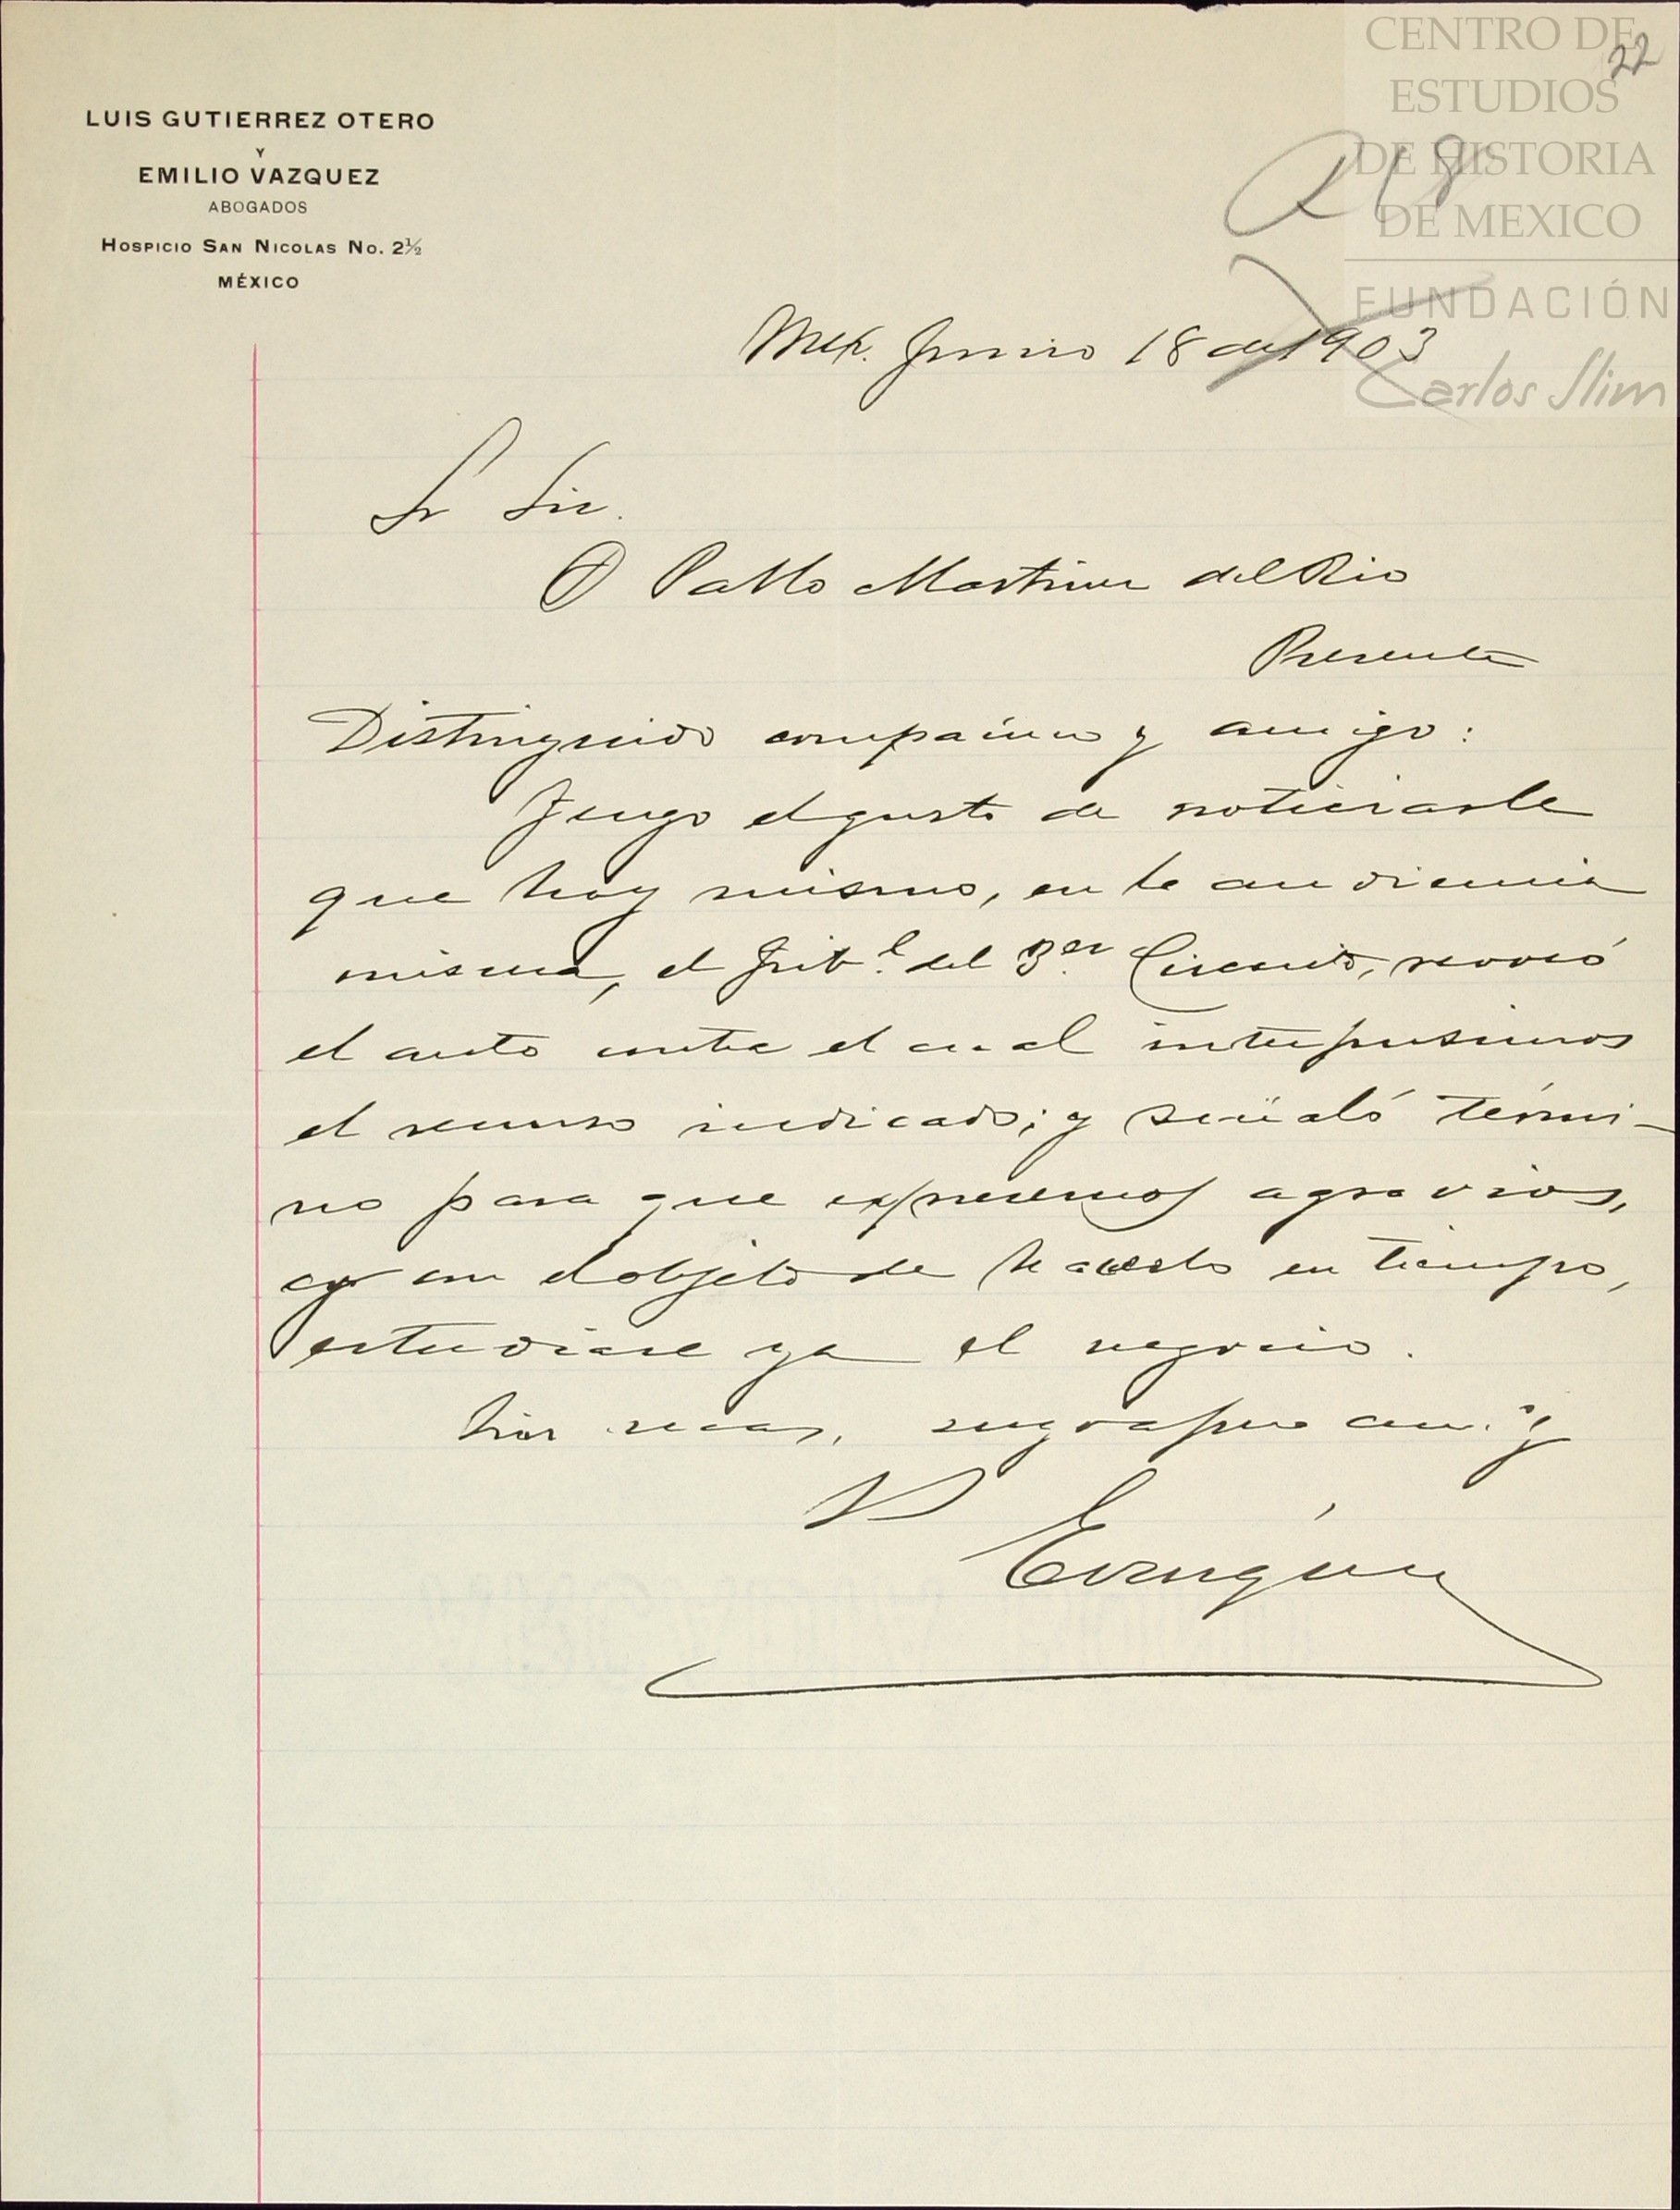 CENTRO DE
ESTUDIOS
DE HISTORIA
DE MEXICO
FUNDACIÓN
Carlos Slim
22
218
LUIS GUTIERREZ OTERO
Y
EMILIO VAZQUEZ
ABOGADOS
HOSPICIO SAN NICOLAS No. 2½
MÉXICO
Mex. Junio 18 de 1903
Sr Lic.
D Pablo Martinez del Rio
Presente
Distinguido compañero y amigo:
Tengo el gusto de noticiarle
que hoy mismo, en la audiencia
misma, el Trib.l del 3.er Circuito, revocó
el auto contra el cual interpusimos
el recurso indicado; y señaló térmi-
no para que expresemos agravios,
y con el objeto de hacerlo en tiempo,
estudiaré ya el negocio.
Sin mas, su afmo am. y
EVázquez